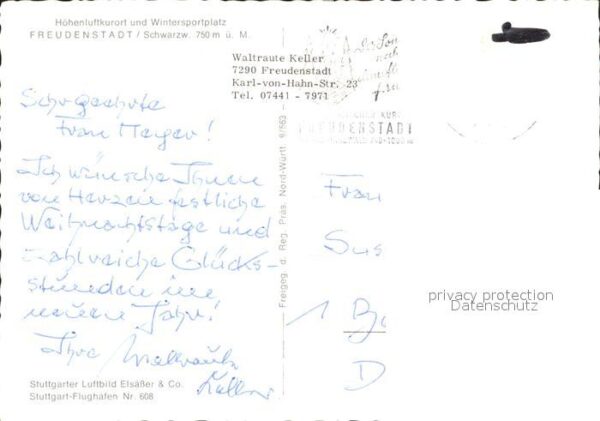 Höhenluftkurort und Wintersportplatz
FREUDENSTADT / Schwarzw. 750 m ü. M.
Waltraute Keller
7290 Freudenstadt
Karl-von-Hahn-Str. 23
Tel. 07441 - 7971
FREUDENSTADT
Sehr geehrte
Frau Meyer!
Ich wünsche Ihnen
von Herzen festliche
Weihnachtstage und
zahlreiche Glücks-
stunden im
neuen Jahr!
Ihre Waltraute
Keller
Stuttgarter Luftbild Elsäßer & Co.
Stuttgart-Flughafen Nr. 608
Freigeg. d. Reg. Präs. Nord-Württ.
Frau
Sus
1 Be
D
privacy protection
Datenschutz